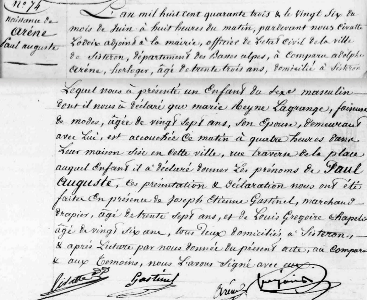 N° 74
Naissance de
Arène
Paul auguste
L'an mil huit cent quarante trois & le vingt Six du
mois de Juin à huit heures du matin, pardevant nous
adjoint à la mairie, officier de l'état Civil de la ville
de Sisteron, département des Basses alpes, à Comparu adolphe
arène, horloger, âgé de trente trois ans, domicilié à Sisteron
Lequel nous à présenté un Enfant du Sexe masculin
dont il nous à déclaré que marie Reyne Lagrange, faiseuse
de modes, âgée de vingt Sept ans, Son Epouse, demeurant
avec Lui, est accouchée ce matin à quatre heures dans
Leur maison Sise en cette ville, rue traverse de la place
auquel Enfant il à déclaré donner Les prénoms de Paul
Auguste, Ces présentation & déclaration nous ont été
faites En présence de Joseph Etienne Gastinel, marchand
drapier, âgé de trente Sept ans, et de Louis Gregoire
âgé de vingt Six ans, tous Deux domiciliés à Sisteron,
& après Lecture par nous donnée du présent acte, au Comparant
& aux témoins, nous L'avons Signé avec eux
Gastinel Arène